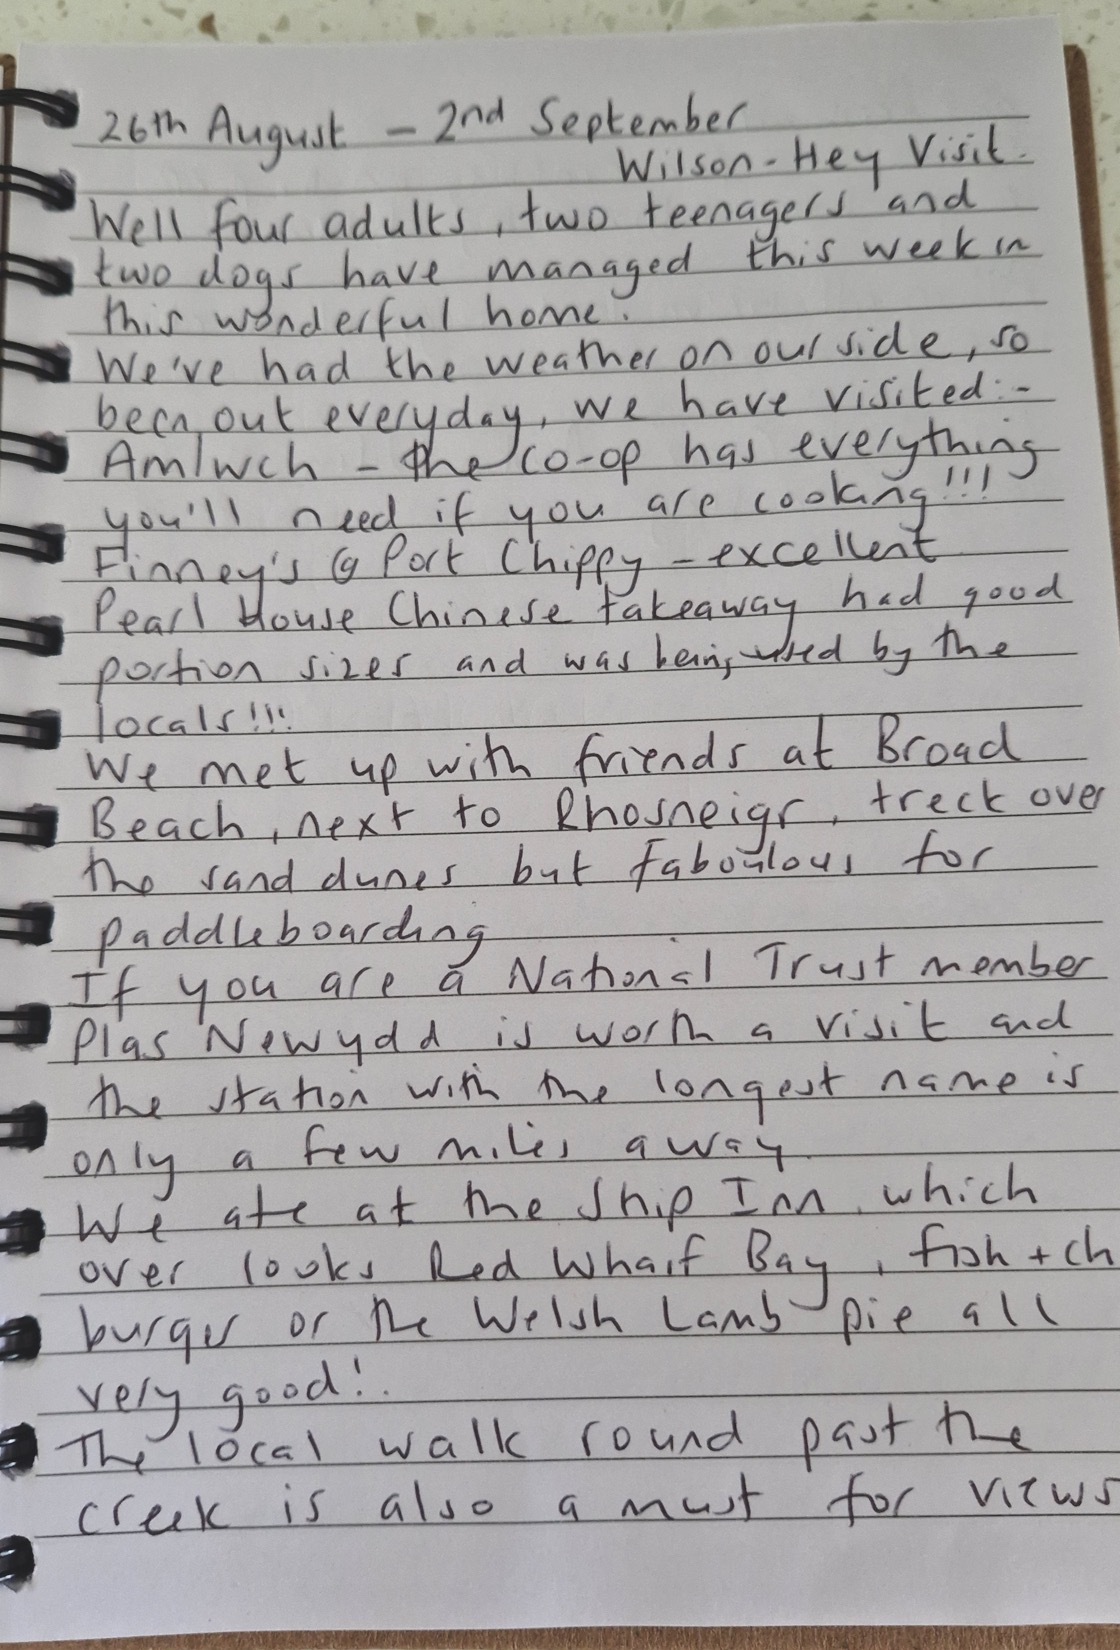 26th August - 2nd September
Wilson-Hey Visit.
Well four adults, two teenagers and
two dogs have managed this week in
this wonderful home.
We've had the weather on our side, so
been out everyday, we have visited:-
Amlwch - the co-op has everything
you'll need if you are cooking!!!
Finney's @ Port Chippy - excellent
Pearl House Chinese takeaway had good
portion sizes and was being used by the
locals!!!
We met up with friends at Broad
Beach, next to Rhosneigr, treck over
the sand dunes but faboulous for
paddleboarding
If you are a National Trust member
Plas Newydd is worth a visit and
the station with the longest name is
only a few miles away.
We ate at the Ship Inn which
over looks Red Wharf Bay, fish + ch
burger or the Welsh Lamb pie all
very good!.
The local walk round past the
creek is also a must for views